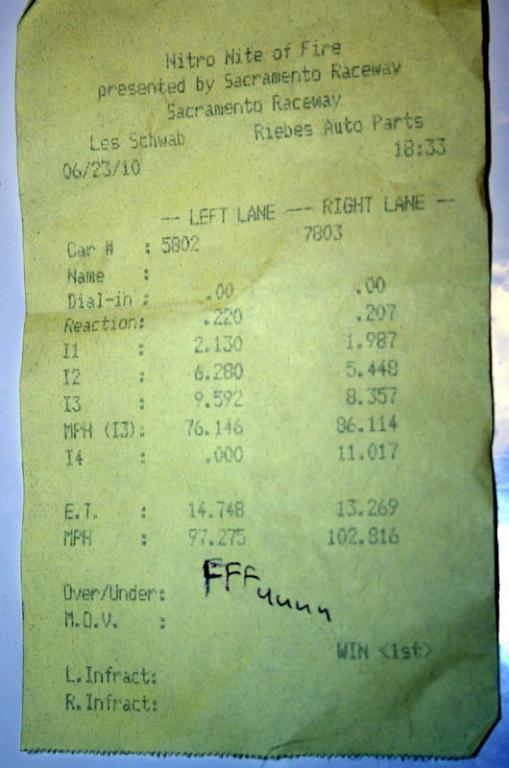 Nitro Nite of Fire
presented by Sacramento Raceway
Sacramento Raceway
Les Schwab Riebes Auto Parts
06/23/10 18:33
-- LEFT LANE --- RIGHT LANE --
Car # : 5802 7803
Name :
Dial-in : .00 .00
Reaction: .220 .207
I1 : 2.130 1.987
I2 : 6.280 5.448
I3 : 9.592 8.357
MPH (I3): 76.146 86.114
I4 : .000 11.017
E.T. : 14.748 13.269
MPH : 97.275 102.816
FFFuuuu
Over/Under:
M.O.V. :
WIN <1st>
L.Infract:
R.Infract: